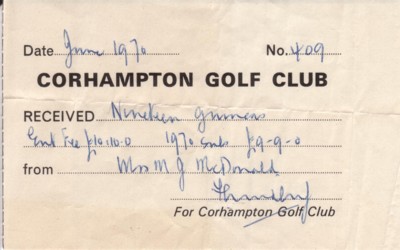 Date June 1970 No. 409
CORHAMPTON GOLF CLUB
RECEIVED Nineteen guineas
Ent Fee £10-10-0 1970 subs £9-9-0
from Mrs M J McDonald
For Corhampton Golf Club